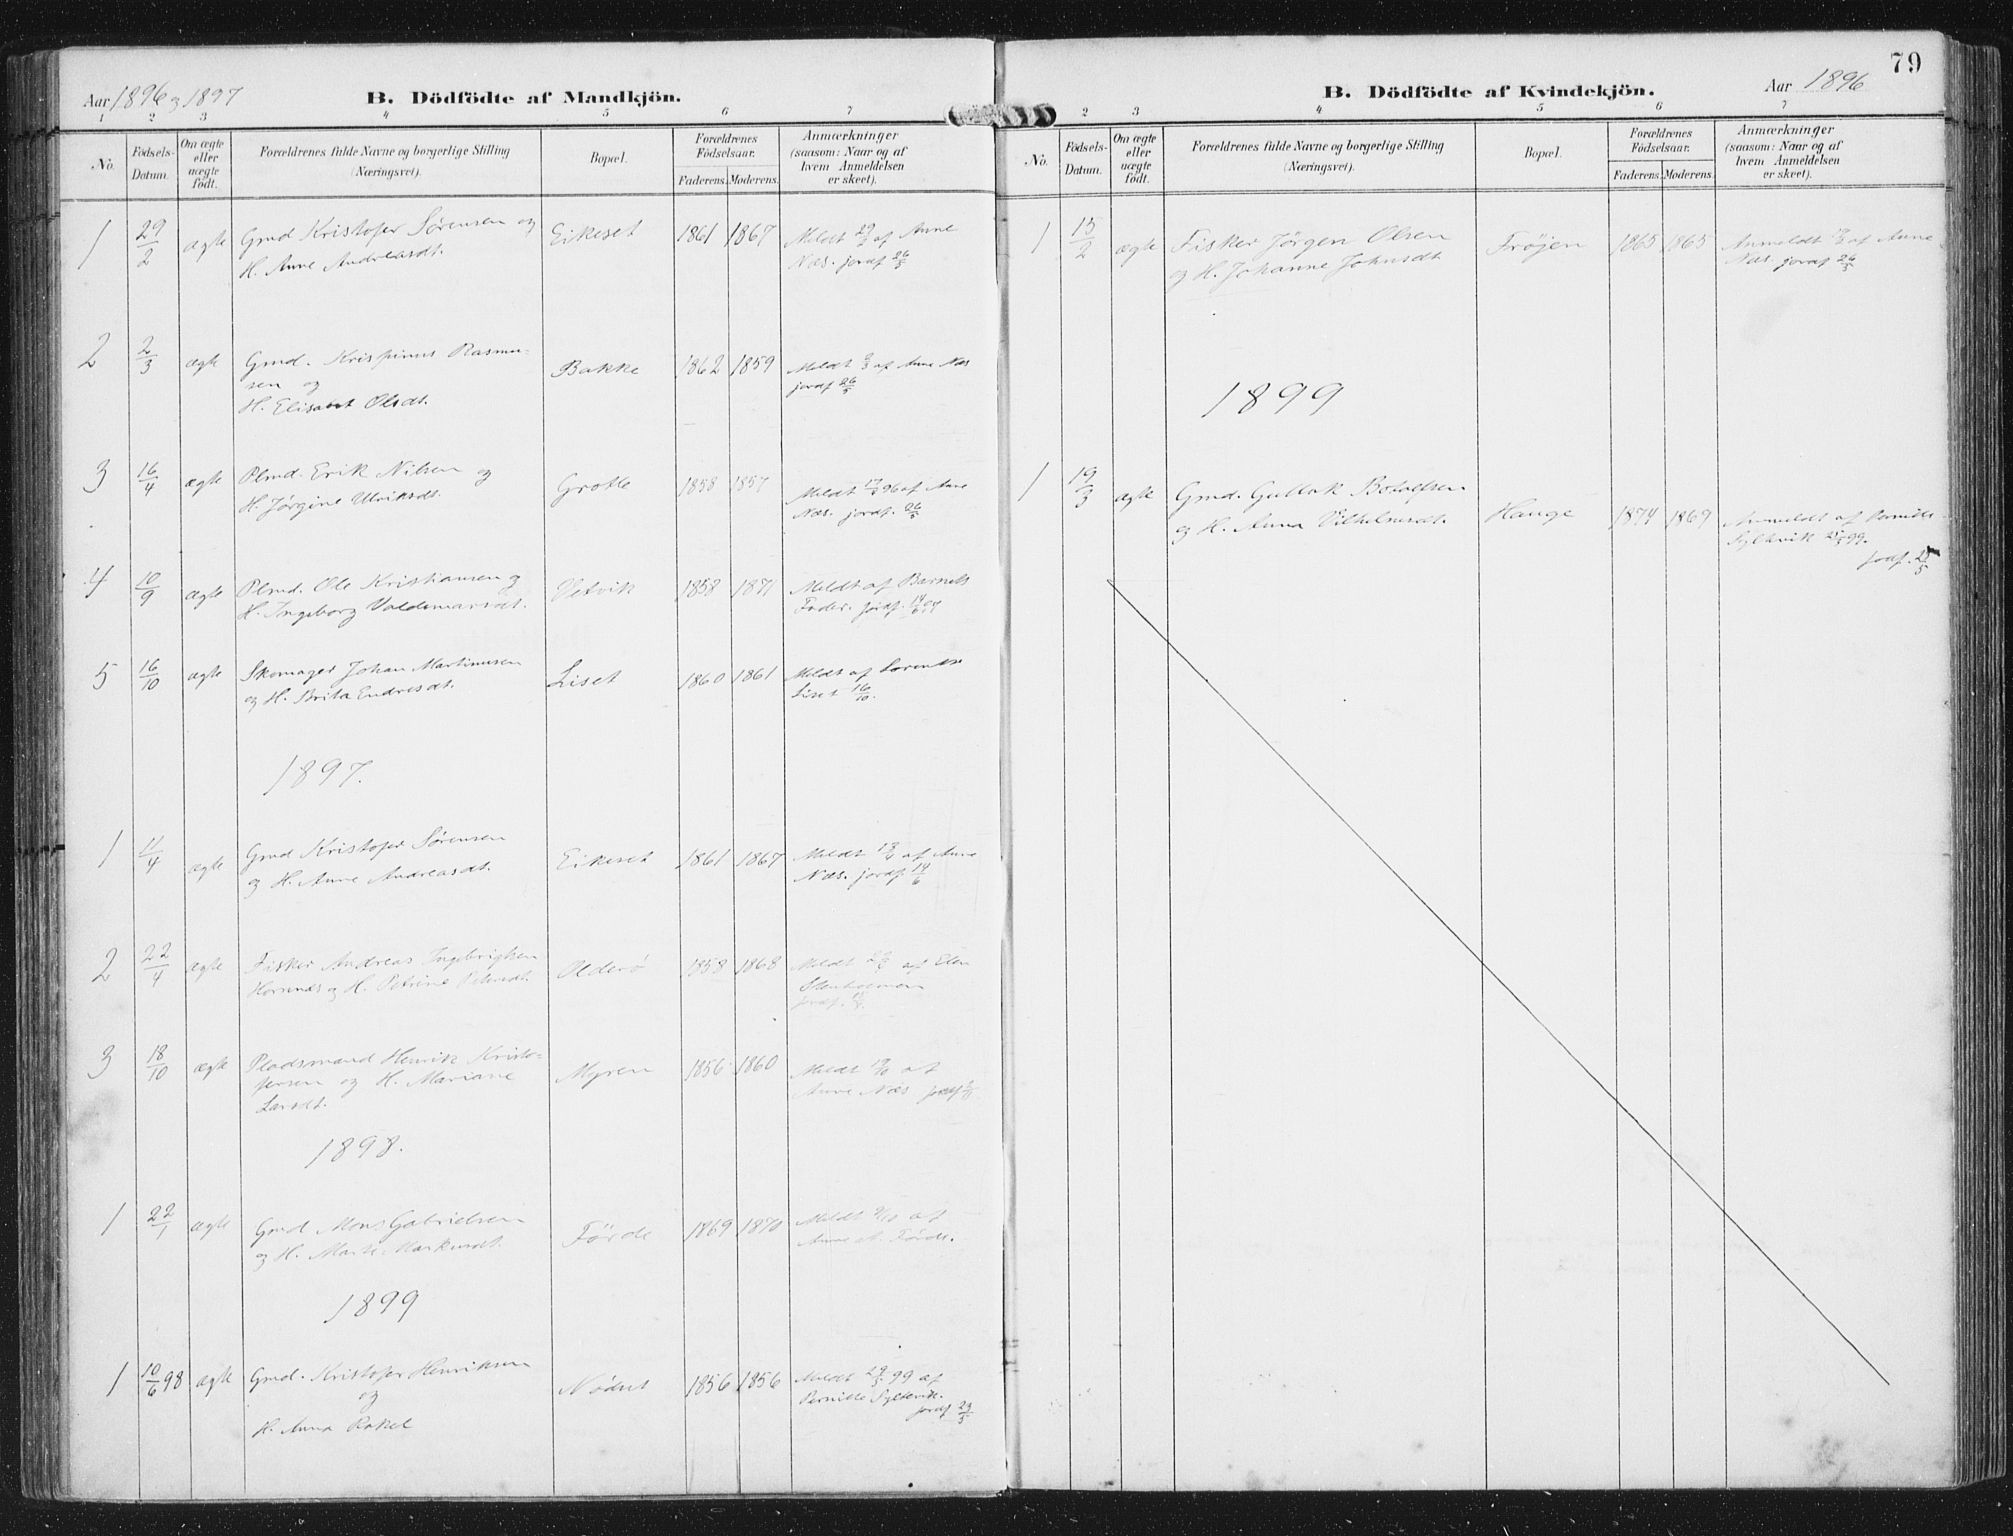 Aar 1896 og 1897 B. Dödfödte af Mandkjön.
1 2 3 4 5 6 7
No. Födsels-Datum. Om ægte eller uægte födt. Forældrenes fulde Navne og borgerlige Stilling (Næringsvei). Bopæl. Forældrenes Födselsaar. Faderens. Moderens. Anmærkninger (saasom: Naar og af hvem Anmeldelsen er skeet).
1 29/2 ægte Gmd Kristofer Sørensen og Eikeset 1861 1867 Meldt af Anne
H. Anne Andreasdt. Næs. jordf. 26/5
2 2/3 ægte Gmd. Krispinus Rasmu- Bakke 1862 1859 Meldt af Anne Næs
sen og jordf 26/5
H. Elisabet Olsdt.
3 16/4 ægte Plmd. Erik Nilsen og Grotle 1858 1857 Meldt 96 af Anne
H. Jørgine Ulriksdt. Næs. jordf. 26/5
4 10/9 ægte Plmd. Ole Kristiansen og Vetvik 1858 1871 Meldt af Barnets
H. Ingeborg Valdemarsdt. Fader. jordf.
5 16/10 ægte Skomager Johan Martinusen Liset 1860 1861 Meldt af Lorentse
og H. Brita Endresdt. Liset 16/10.
1897.
1 11/4 ægte Gmd Kristofer Sørensen Eikeset 1861 1867 Meldt af Anne
og H. Anne Andreasdt. Næs. jordf. 14/6
2 22/4 ægte Fisker Andreas Ingebrigtsen Olderö 1858 1868 Meldt af Elen
Hornnæs og H. Petrine
jordf.
3 18/10 ægte Pladsmand Henrik Kristo- Myren 1856 1860 Meldt af
fersen og H. Mariane Anne Næs jordf
Larsdt.
1898.
1 22/1 ægte Gmd Mons Gabrielsen Førde 1869 1870 Meldt af
og H. Marte Markusdt. Førde.
1899
1 10/6 98 ægte Gmd. Kristofer Henriksen 1856 1856 Meldt 29/5 99 af
og Pernille Sylterik.
H. Anna Rakel jordf 29/5
79
B. Dödfödte af Kvindekjön. Aar 1896
2 3 4 5 6 7
No. Födsels-Datum. Om ægte eller uægte födt. Forældrenes fulde Navne og borgerlige Stilling (Næringsvei). Bopæl. Forældrenes Födselsaar. Faderens. Moderens. Anmærkninger (saasom: Naar og af hvem Anmeldelsen er skeet).
1 15/2 ægte Fisker Jørgen Olsen Frøjen 1865 1865 Anmeldt af Anne
og H. Johanne Johnsdt Næs jordf 26/5
1899
1 19/3 ægte Gmd. Gullak Botolfsen Hauge 1874 1869 Anmeldt af Pernille
og H. Anna Vilhelmsdt. 99.
jordf.